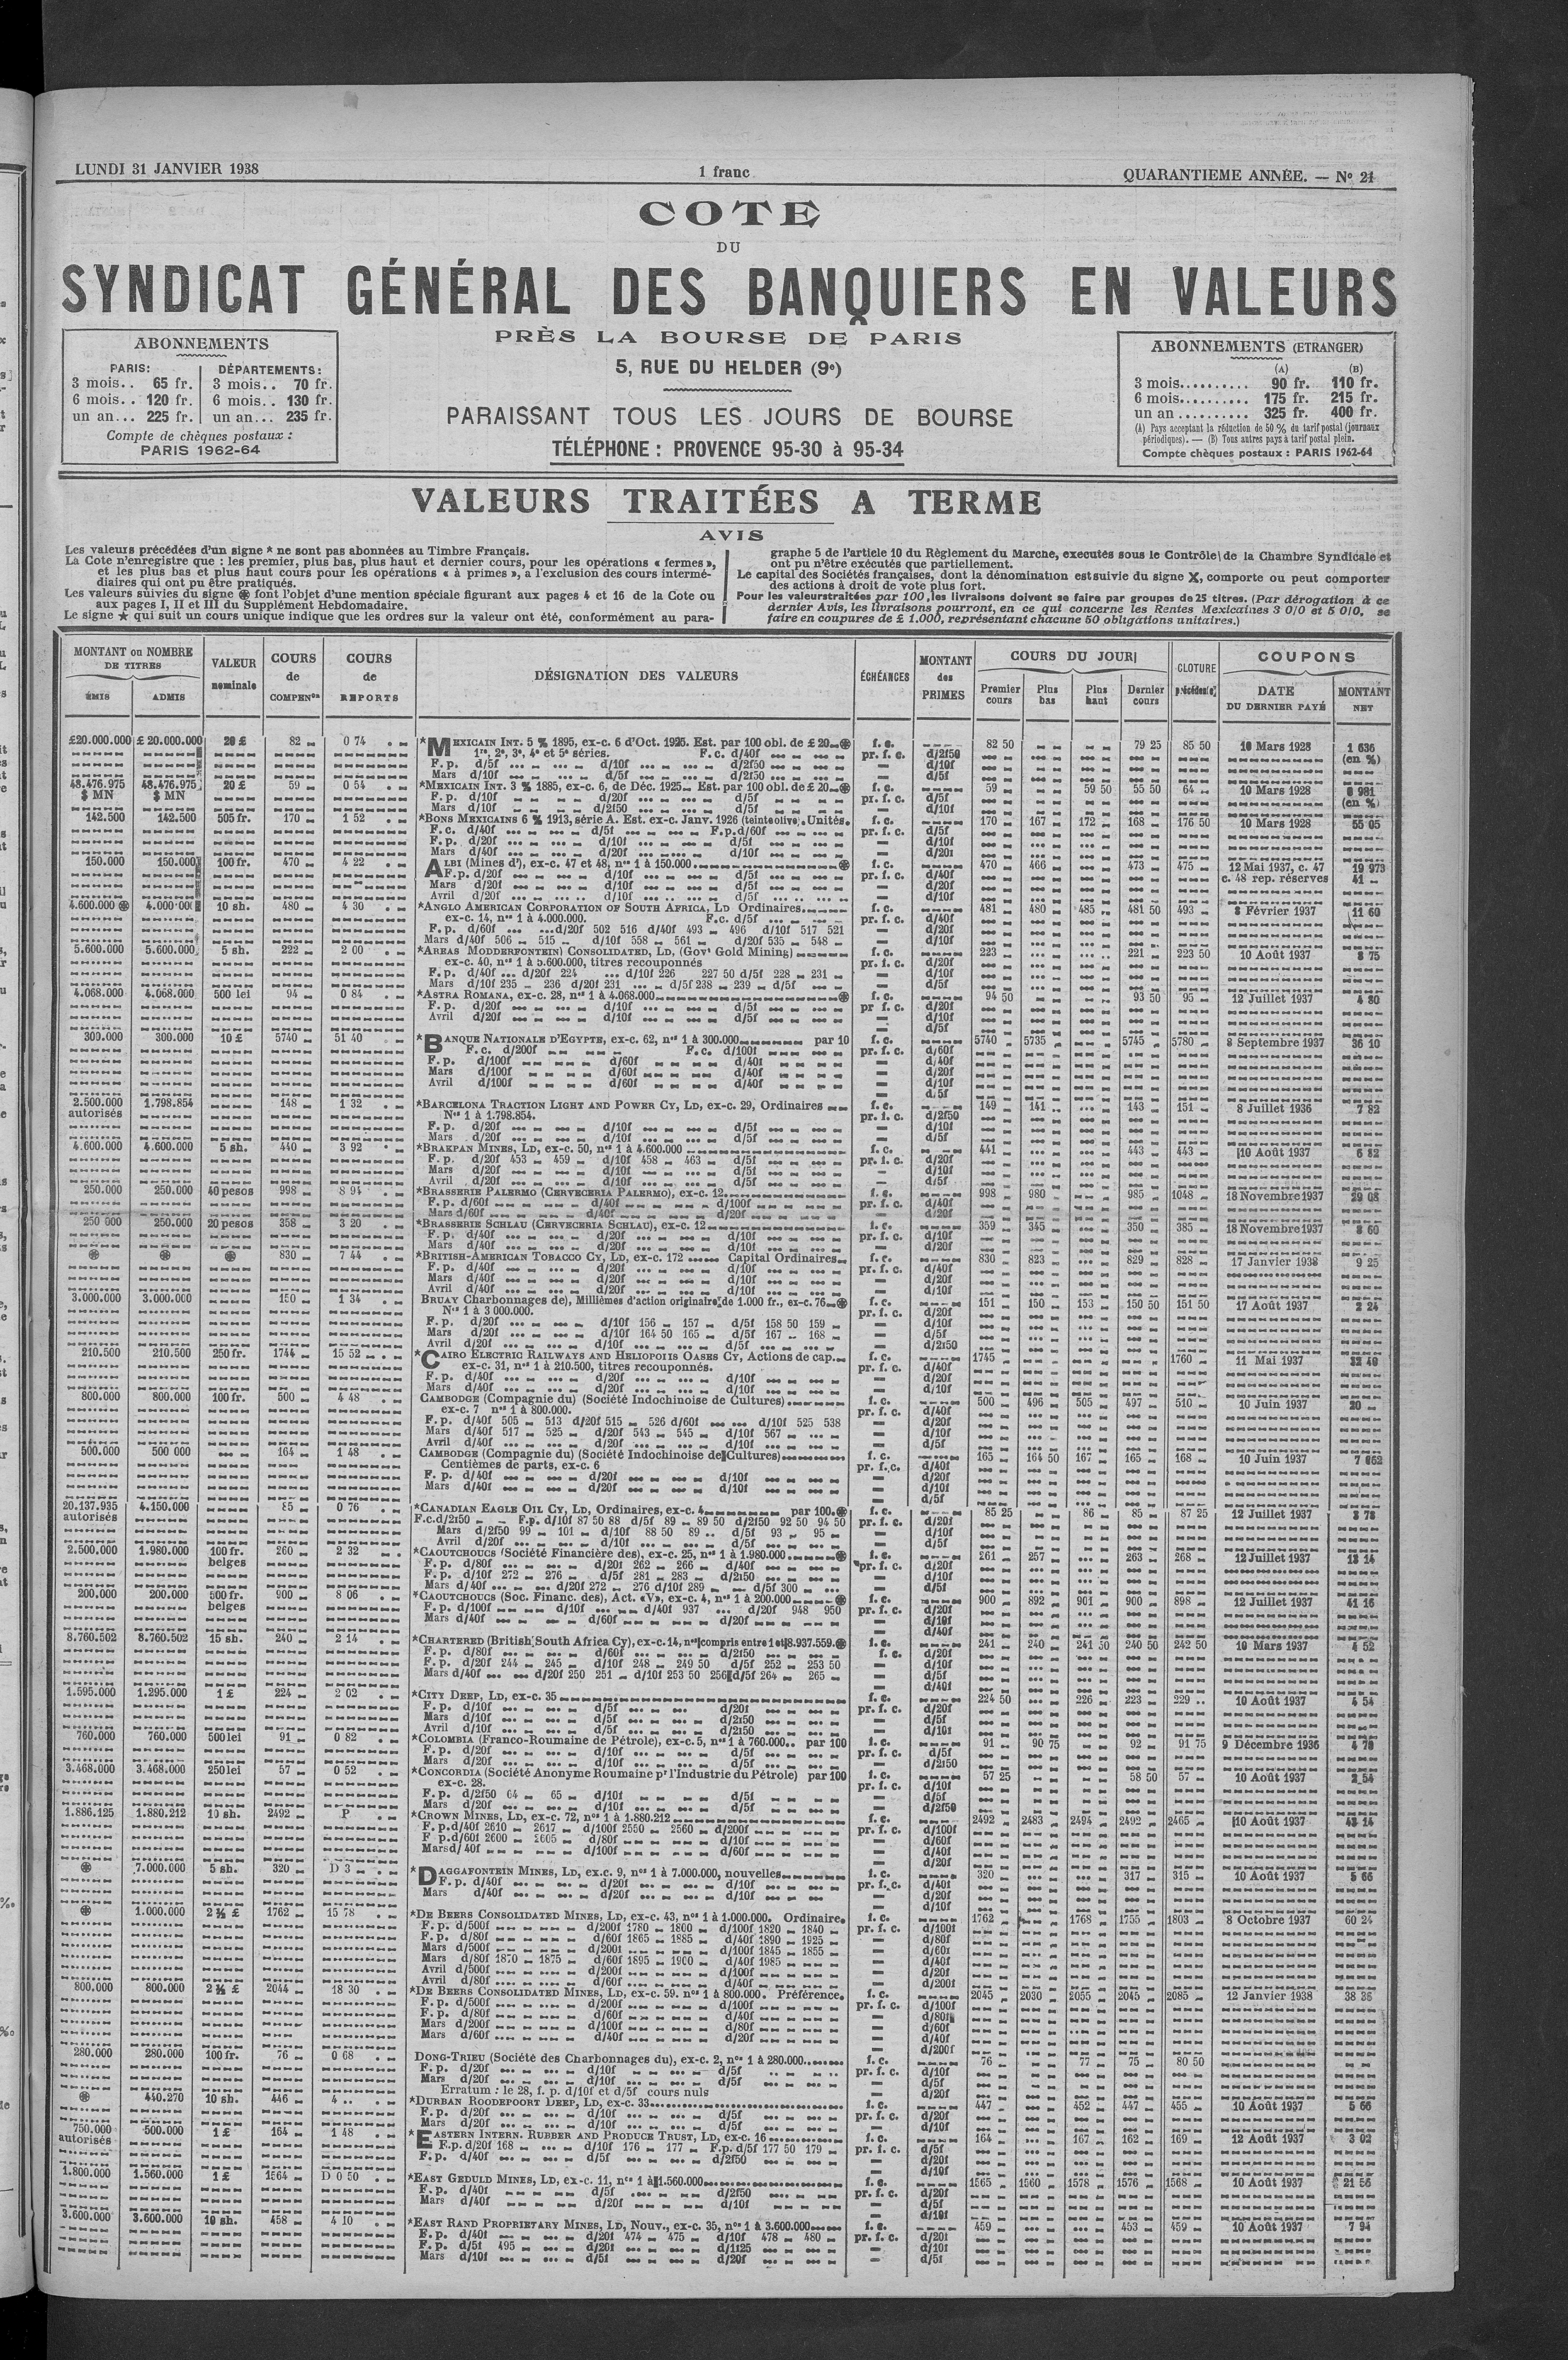 LUNDI 31 JANVIER 1938
1 franc
QUARANTIEME ANNÉE. — N° 21
COTE
DU
SYNDICAT GÉNÉRAL DES BANQUIERS EN VALEURS
PRÈS LA BOURSE DE PARIS
5, RUE DU HELDER (9e)
PARAISSANT TOUS LES JOURS DE BOURSE
TÉLÉPHONE : PROVENCE 95-30 à 95-34
ABONNEMENTS
PARIS: DÉPARTEMENTS:
3 mois.. 65 fr. 3 mois.. 70 fr.
6 mois.. 120 fr. 6 mois.. 130 fr.
un an... 225 fr. un an... 235 fr.
Compte de chèques postaux :
PARIS 1962-64
ABONNEMENTS (ETRANGER)
(A) (B)
3 mois.......... 90 fr. 110 fr.
6 mois.......... 175 fr. 215 fr.
un an .......... 325 fr. 400 fr.
(A) Pays acceptant la réduction de 50 % du tarif postal (journaux
périodiques). — (B) Tous autres pays à tarif postal plein.
Compte chèques postaux : PARIS 1962-64
VALEURS TRAITÉES A TERME
AVIS
Les valeurs précédées d'un signe * ne sont pas abonnées au Timbre Français.
La Cote n'enregistre que : les premier, plus bas, plus haut et dernier cours, pour les opérations « fermes »,
et les plus bas et plus haut cours pour les opérations « à primes », a l'exclusion des cours intermé-
diaires qui ont pu être pratiqués.
Les valeurs suivies du signe ⊛ font l'objet d'une mention spéciale figurant aux pages 4 et 16 de la Cote ou
aux pages I, II et III du Supplément Hebdomadaire.
Le signe ★ qui suit un cours unique indique que les ordres sur la valeur ont été, conformément au para-
graphe 5 de l'article 10 du Règlement du Marche, executés sous le Contrôle de la Chambre Syndicale et
ont pu n'être exécutés que partiellement.
Le capital des Sociétés françaises, dont la dénomination est suivie du signe X, comporte ou peut comporter
des actions à droit de vote plus fort.
Pour les valeurs traitées par 100, les livraisons doivent se faire par groupes de 25 titres. (Par dérogation à ce
dernier Avis, les livraisons pourront, en ce qui concerne les Rentes Mexicaines 3 0/0 et 5 0/0, se
faire en coupures de £ 1.000, représentant chacune 50 obligations unitaires.)
MONTANT ou NOMBRE DE TITRES
ÉMIS ADMIS
VALEUR nominale
COURS de COMPENon
COURS de REPORTS
DÉSIGNATION DES VALEURS
ÉCHÉANCES
MONTANT des PRIMES
COURS DU JOUR
Premier cours Plus bas Plus haut Dernier cours
CLOTURE précédente
COUPONS
DATE DU DERNIER PAYÉ
MONTANT NET
£20.000.000 £ 20.000.000 20 £ 82 0 74 *MEXICAIN INT. 5 % 1895, ex-c. 6 d'Oct. 1925. Est. par 100 obl. de £ 20 ⊛ f. c. 82 50 79 25 85 50 10 Mars 1928 1 636
1re, 2e, 3e, 4e et 5e séries. F.c. d/40f pr. f. c. d/2f50 (en %)
F. p. d/5f d/10f d/2f50 d/10f
Mars d/10f d/5f d/2f50 d/5f
48.476.975 48.476.975 20 £ 59 0 54 *MEXICAIN INT. 3 % 1885, ex-c. 6, de Déc. 1925 Est. par 100 obl. de £ 20 ⊛ f. c. 59 59 50 55 50 64 10 Mars 1928 0 981
$ MN $ MN F. p. d/10f d/20f d/5f pr. f. c. d/5f (en %)
Mars d/10f d/2f50 d/5f d/10f
142.500 142.500 505 fr. 170 1 52 *BONS MEXICAINS 6 % 1913, série A. Est. ex-c. Janv. 1926 (teinte olive). Unités. f. c. 170 167 172 168 176 50 10 Mars 1928 55 05
F. c. d/40f d/5f F.p. d/60f pr. f. c. d/5f
F. p. d/20f d/10f d/5f d/10f
Mars d/40f d/20f d/10f d/20f
150.000 150.000 100 fr. 470 4 22 ALBI (Mines d'), ex-c. 47 et 48, nos 1 à 150.000 ⊛ f. c. 470 466 473 475 12 Mai 1937, c. 47 19 973
F. p. d/20f d/10f d/5f pr. f. c. d/40f c. 48 rep. réserves 41
Mars d/20f d/10f d/5f d/20f
Avril d/20f d/10f d/5f d/10f
4.600.000 ⊛ 4.000.000 10 sh. 480 4 30 *ANGLO AMERICAN CORPORATION OF SOUTH AFRICA, LD Ordinaires f. c. 481 480 485 481 50 493 8 Février 1937 11 60
ex-c. 14, nos 1 à 4.000.000. F.c. d/5f pr. f. c. d/40f
F. p. d/60f d/20f 502 516 d/40f 493 496 d/10f 517 521 d/20f
Mars d/40f 506 515 d/10f 558 561 d/20f 535 548 d/10f
5.600.000 5.600.000 5 sh. 222 2 00 *AREAS MODDERFONTEIN) CONSOLIDATED, LD, (Govt Gold Mining) f. c. 223 221 223 50 10 Août 1937 8 75
ex-c. 40, nos 1 à 5.600.000, titres recouponnés pr. f. c. d/20f
F. p. d/40f d/20f 224 d/10f 226 227 50 d/5f 228 231 d/10f
Mars d/10f 235 236 d/20f 231 d/5f 238 239 d/5f d/5f
4.068.000 4.068.000 500 lei 94 0 84 *ASTRA ROMANA, ex-c. 28, nos 1 à 4.068.000 ⊛ f. c. 94 50 93 50 95 12 Juillet 1937 4 80
F. p. d/20f d/10f d/5f pr f. c. d/20f
Avril d/20f d/10f d/5f d/10f
d/5f
300.000 300.000 10 £ 5740 51 40 *BANQUE NATIONALE D'EGYPTE, ex-c. 62, nos 1 à 300.000 par 10 f. c. 5740 5735 5745 5780 8 Septembre 1937 36 10
F. c. d/200f F. c. d/100f pr. f. c. d/60f
F. p. d/100f d/60f d/40f d/40f
Mars d/100f d/60f d/40f d/20f
Avril d/100f d/60f d/40f d/10f
d/5f
2.500.000 1.798.854 148 1 32 *BARCELONA TRACTION LIGHT AND POWER CY, LD, ex-c. 29, Ordinaires f. c. 149 141 143 151 8 Juillet 1936 7 82
autorisés Nos 1 à 1.798.854. pr. f. c. d/2f50
F. p. d/20f d/10f d/5f d/10f
Mars d/20f d/10f d/5f d/5f
4.600.000 4.600.000 5 sh. 440 3 92 *BRAKPAN MINES, LD, ex-c. 50, nos 1 à 4.600.000 f. c. 441 443 443 10 Août 1937 6 82
F. p. d/20f 453 459 d/10f 458 463 d/5f pr. f. c. d/20f
Mars d/20f d/10f d/5f d/10f
Avril d/20f d/10f d/5f d/5f
250.000 250.000 40 pesos 998 8 94 *BRASSERIE PALERMO (CERVECERIA PALERMO), ex-c. 12 f. c. 998 980 985 1048 18 Novembre 1937 29 08
F. p. d/60f d/40f d/100f pr. f. c. d/40f
Mars d/60f d/40f d/20f d/20f
250 000 250.000 20 pesos 358 3 20 *BRASSERIE SCHLAU (CERVECERIA SCHLAU), ex-c. 12 f. c. 359 345 350 385 18 Novembre 1937 8 60
F. p. d/40f d/20f d/10f pr. f. c. d/10f
Mars d/40f d/20f d/10f d/20f
⊛ ⊛ ⊛ 830 7 44 *BRITISH-AMERICAN TOBACCO CY, LD, ex-c. 172 Capital Ordinaires f. c. 830 823 829 828 17 Janvier 1938 9 25
F. p. d/40f d/20f d/10f pr. f. c. d/40f
Mars d/40f d/20f d/10f d/20f
Avril d/40f d/20f d/10f d/10f
3.000.000 3.000.000 150 1 34 BRUAY Charbonnages de), Millièmes d'action originaire de 1.000 fr., ex-c. 76 ⊛ f. c. 151 150 153 150 50 151 50 17 Août 1937 2 24
Nos 1 à 3 000.000. pr. f. c. d/20f
F. p. d/20f d/10f 156 157 d/5f 158 50 159 d/10f
Mars d/20f d/10f 164 50 165 d/5f 167 168 d/5f
Avril d/20f d/10f d/5f d/2f50
210.500 210.500 250 fr. 1744 15 52 *CAIRO ELECTRIC RAILWAYS AND HELIOPOLIS OASES CY, Actions de cap. f. c. 1745 1760 11 Mai 1937 32 40
ex-c. 31, nos 1 à 210.500, titres recouponnés. pr. f. c. d/40f
F. p. d/40f d/20f d/10f d/20f
Mars d/40f d/20f d/10f d/10f
800.000 800.000 100 fr. 500 4 48 CAMBODGE (Compagnie du) (Société Indochinoise de Cultures) f. c. 500 496 505 497 510 10 Juin 1937 20
ex-c. 7 nos 1 à 800.000. pr. f. c. d/40f
F. p. d/40f 505 513 d/20f 515 526 d/60f d/10f 525 538 d/20f
Mars d/40f 517 525 d/20f 543 545 d/10f 567 d/10f
Avril d/40f d/20f d/10f d/5f
500.000 500 000 164 1 48 CAMBODGE (Compagnie du) (Société Indochinoise de Cultures) f. c. 165 164 50 167 165 168 10 Juin 1937 7 652
Centièmes de parts, ex-c. 6 pr. f. c. d/40f
F. p. d/40f d/20f d/10f d/20f
Mars d/40f d/20f d/10f d/10f
d/5f
20.137.935 4.150.000 85 0 76 *CANADIAN EAGLE OIL CY, LD, Ordinaires, ex-c. 4 par 100. ⊛ f. c. 85 25 86 85 87 25 12 Juillet 1937 3 78
autorisés F.c. d/2f50 F.p. d/10f 87 50 88 d/5f 89 89 50 d/2f50 92 50 94 50 pr. f. c. d/20f
Mars d/2f50 99 101 d/10f 88 50 89 d/5f 93 95 d/10f
Avril d/20f d/10f d/5f d/5f
2.500.000 1.980.000 100 fr. 260 2 32 *CAOUTCHOUCS (Société Financière des), ex-c. 25, nos 1 à 1.980.000 ⊛ f. c. 261 257 263 268 12 Juillet 1937 13 14
belges F. p. d/80f d/20f 262 266 d/40f pr. f. c. d/20f
F. p. d/10f 272 276 d/5f 281 283 d/2f50 d/10f
Mars d/40f d/20f 272 276 d/10f 289 d/5f 300 d/5f
200.000 200.000 500 fr. 900 8 06 *CAOUTCHOUCS (Soc. Financ. des), Act. «V», ex-c. 4, nos 1 à 200.000 ⊛ f. c. 900 892 901 900 898 12 Juillet 1937 41 16
belges F. p. d/100f d/10f d/40f 937 d/20f 948 950 pr. f. c. d/20f
Mars d/40f d/60f d/20f d/10f
d/40f
8.760.502 8.760.502 15 sh. 240 2 14 *CHARTERED (British South Africa Cy), ex-c. 14, nos compris entre 1 et 8.937.559. ⊛ f. c. 241 240 241 50 240 50 242 50 10 Mars 1937 4 52
F. p. d/80f d/60f d/2f50 f. c. d/20f
F. p. d/20f 244 245 d/10f 248 249 50 d/5f 252 253 50 d/10f
Mars d/40f d/20f 250 251 d/10f 253 50 256 d/5f 264 265 d/5f
d/40f
1.595.000 1.295.000 1 £ 224 2 02 *CITY DEEP, LD, ex-c. 35 f. c. 224 50 226 223 229 10 Août 1937 4 54
F. p. d/10f d/5f d/20f pr. f. c. d/20f
Mars d/10f d/5f d/2f50 d/5f
Avril d/10f d/5f d/2f50 d/10f
760.000 760.000 500 lei 91 0 82 *COLOMBIA (Franco-Roumaine de Pétrole), ex-c. 5, nos 1 à 760.000 par 100 f. c. 91 90 75 92 91 75 9 Décembre 1936 4 78
F. p. d/20f d/10f d/5f pr. f. c. d/5f
Mars d/20f d/10f d/5f d/2f50
3.468.000 3.468.000 250 lei 57 0 52 *CONCORDIA (Société Anonyme Roumaine pr l'Industrie du Pétrole) par 100 f. c. 57 25 58 50 57 10 Août 1937 2 54
ex-c. 28. pr. f. c. d/10f
F. p. d/2f50 64 65 d/10f d/5f d/5f
Mars d/20f d/10f d/5f d/2f50
1.886.125 1.880.212 10 sh. 2492 P *CROWN MINES, LD, ex-c. 72, nos 1 à 1.880.212 f. c. 2492 2483 2494 2492 2465 10 Août 1937 43 14
F. p. d/40f 2610 2617 d/100f 2550 2560 d/200f pr. f. c. d/100f
F p. d/60f 2600 2605 d/80f d/10f d/60f
Mars d/40f d/100f d/60f d/40f
d/20f
⊛ 7.000.000 5 sh. 320 D 3 *DAGGAFONTEIN MINES, LD, ex.c. 9, nos 1 à 7.000.000, nouvelles f. c. 320 317 315 10 Août 1937 5 66
F. p. d/40f d/20f d/10f pr. f. c. d/40f
Mars d/40f d/20f d/10f d/20f
d/10f
⊛ 1.000.000 2 ½ £ 1762 15 78 *DE BEERS CONSOLIDATED MINES, LD, ex-c. 43, nos 1 à 1.000.000. Ordinaire. f. c. 1762 1768 1755 1803 8 Octobre 1937 60 24
F. p. d/500f d/200f 1780 1800 d/100f 1820 1840 pr. f. c. d/100f
F. p. d/80f d/60f 1865 1885 d/40f 1890 1925 d/80f
Mars d/500f d/200f d/100f 1845 1855 d/60f
Mars d/80f 1870 1875 d/60f 1895 1900 d/40f 1985 d/40f
Avril d/500f d/200f d/100f d/20f
Avril d/80f d/60f d/40f d/200f
800.000 800.000 2 ½ £ 2044 18 30 *DE BEERS CONSOLIDATED MINES, LD, ex-c. 59. nos 1 à 800.000. Préférence. f. c. 2045 2030 2055 2045 2085 12 Janvier 1938 38 36
F. p. d/500f d/200f d/100f pr. f. c. d/100f
F. p. d/80f d/60f d/40f d/80f
Mars d/200f d/100f d/80f d/60f
Mars d/60f d/40f d/20f d/40f
d/200f
280.000 280.000 100 fr. 76 0 68 DONG-TRIEU (Société des Charbonnages du), ex-c. 2, nos 1 à 280.000 f. c. 76 77 75 80 50
F. p. d/20f d/10f d/5f pr. f. c. d/10f
Mars d/20f d/10f d/5f d/5f
Erratum : le 28, f. p. d/10f et d/5f cours nuls d/20f
⊛ 440.270 10 sh. 446 4 *DURBAN ROODEPOORT DEEP, LD, ex-c. 33 f. c. 447 452 447 455 10 Août 1937 5 66
F. p. d/20f d/10f d/5f pr. f. c. d/20f
Mars d/20f d/10f d/5f d/10f
750.000 500.000 1 £ 164 1 48 *EASTERN INTERN. RUBBER AND PRODUCE TRUST, LD, ex-c. 16 f. c. 164 167 162 169 12 Août 1937 3 02
autorisés F.p. d/20f 168 d/10f 176 177 F.p. d/5f 177 50 179 pr. f. c. d/5f
F. p. d/40f d/5f d/2f50 d/20f
d/10f
1.800.000 1.560.000 1 £ 1564 D 0 50 *EAST GEDULD MINES, LD, ex-c. 11, nos 1 à 1.560.000 f. c. 1565 1560 1578 1576 1568 10 Août 1937 21 56
F. p. d/40f d/5f d/2f50 pr. f. c. d/20f
Mars d/40f d/20f d/10f d/5f
d/10f
3.600.000 3.600.000 10 sh. 458 4 10 *EAST RAND PROPRIETARY MINES, LD, Nouv., ex-c. 35, nos 1 à 3.600.000 f. c. 459 453 459 10 Août 1937 7 94
F. p. d/40f d/20f 474 475 d/10f 478 480 pr. f. c. d/20f
F. p. d/5f 495 d/20f d/1f25 d/10f
Mars d/10f d/5f d/20f d/5f